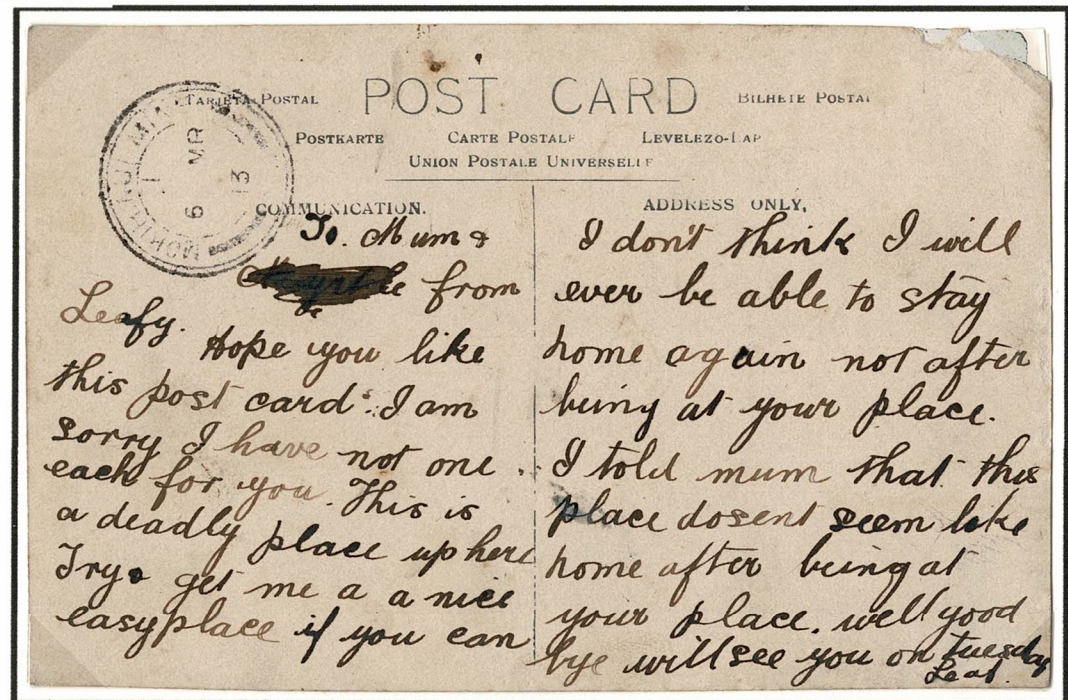 POST CARD
TARJETA POSTAL
BILHETE POSTAL
POSTKARTE
CARTE POSTALE
LEVELEZO-LAP
UNION POSTALE UNIVERSELLE
6 MR
13
COMMUNICATION.
To. Mum &
from
Leafy.
Hope you like
this post card. I am
sorry I have not one
each for you. This is
a deadly place up here
Try & get me a a nice
easy place if you can
ADDRESS ONLY,
I don't think I will
ever be able to stay
home again not after
being at your place.
I told mum that this
place dosent seem like
home after being at
your place. well good
bye will see you on tuesday
Leaf.